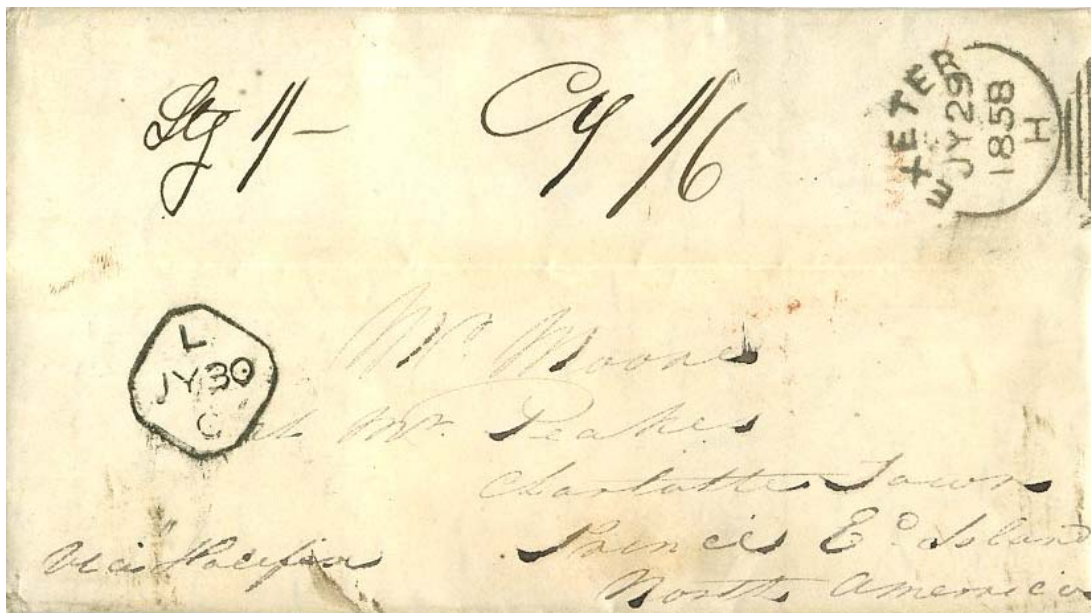 Stg 1/- Cy 1/6
EXETER
JY 29
1858
H
L
JY 30
C
Mr. Moore
at Mr. Peakes
Charlotte Town
Princes Ed. Island
North America
Via Halifax